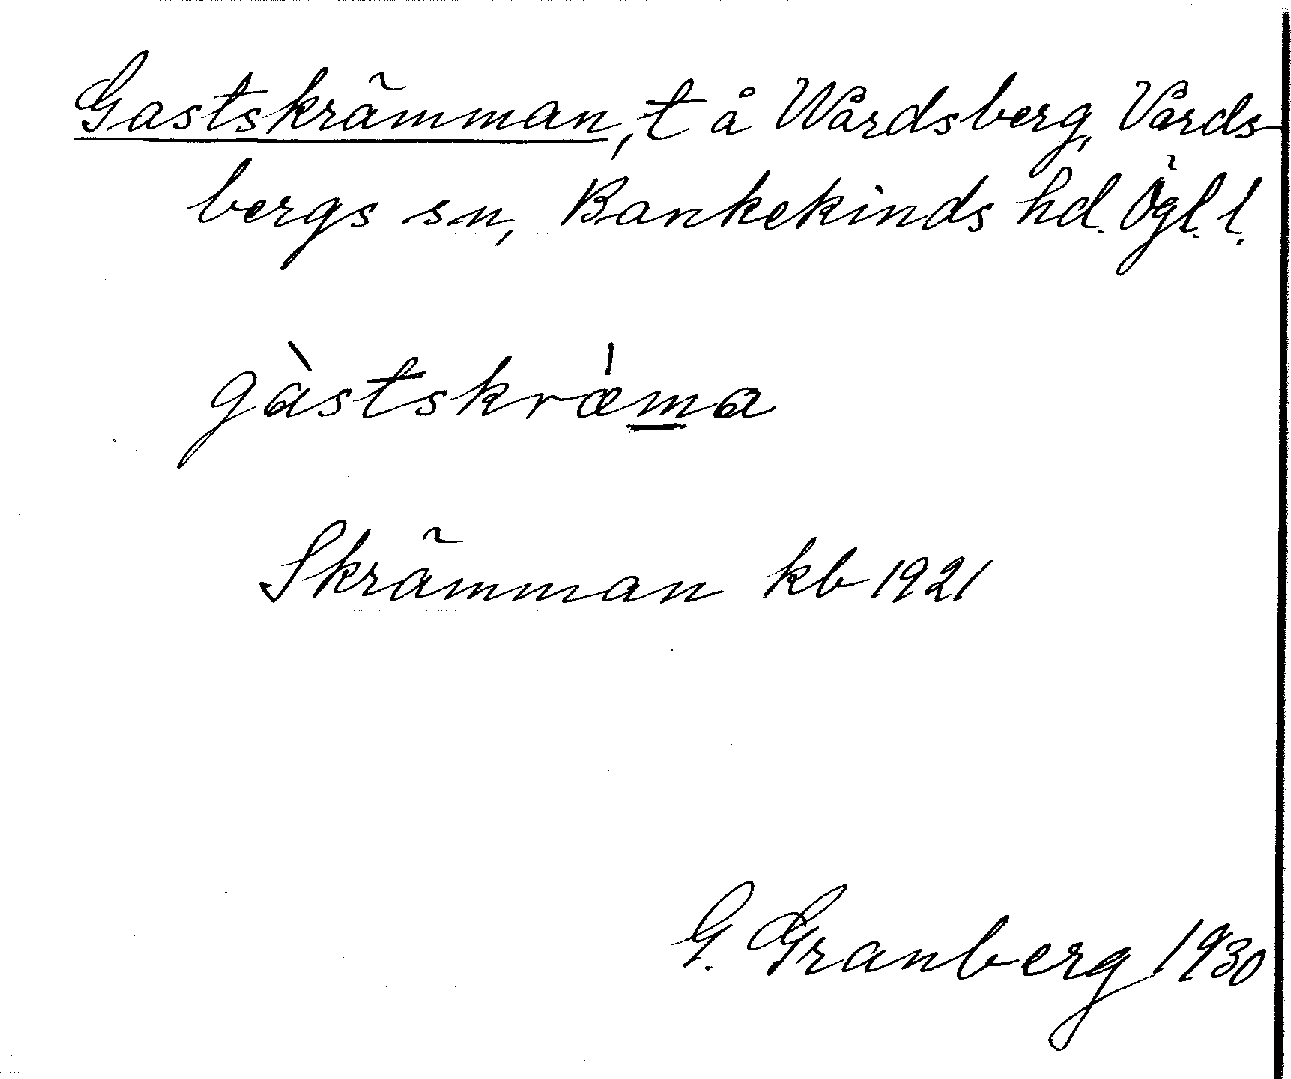 Gastskrämman, t å Wårdsberg, Vårds-
bergs sn, Bankekinds hd. Ögl. l.
gàstskræ̀m̲a
Skrämman kb 1921
G. Granberg 1930